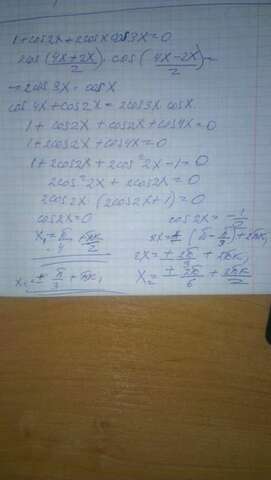 1+cos2x+2cosx cos3x=0
2cos(4x+2x/2)·cos(4x-2x/2)=
=2cos3x·cosx
cos4x+cos2x=2cos3x cosx
1+cos2x+cos2x+cos4x=0
1+2cos2x+cos4x=0
1+2cos2x+2cos²2x-1=0
2cos²2x+2cos2x=0
2cos2x(2cos2x+1)=0
cos2x=0 cos2x=-1/2
x₁=π/4+πk/2 2x=±(π-π/3)+2πk,
2x=±2π/3+2πk,
x₂=±π/3+πk, x₂=±2π/6+2πk/2